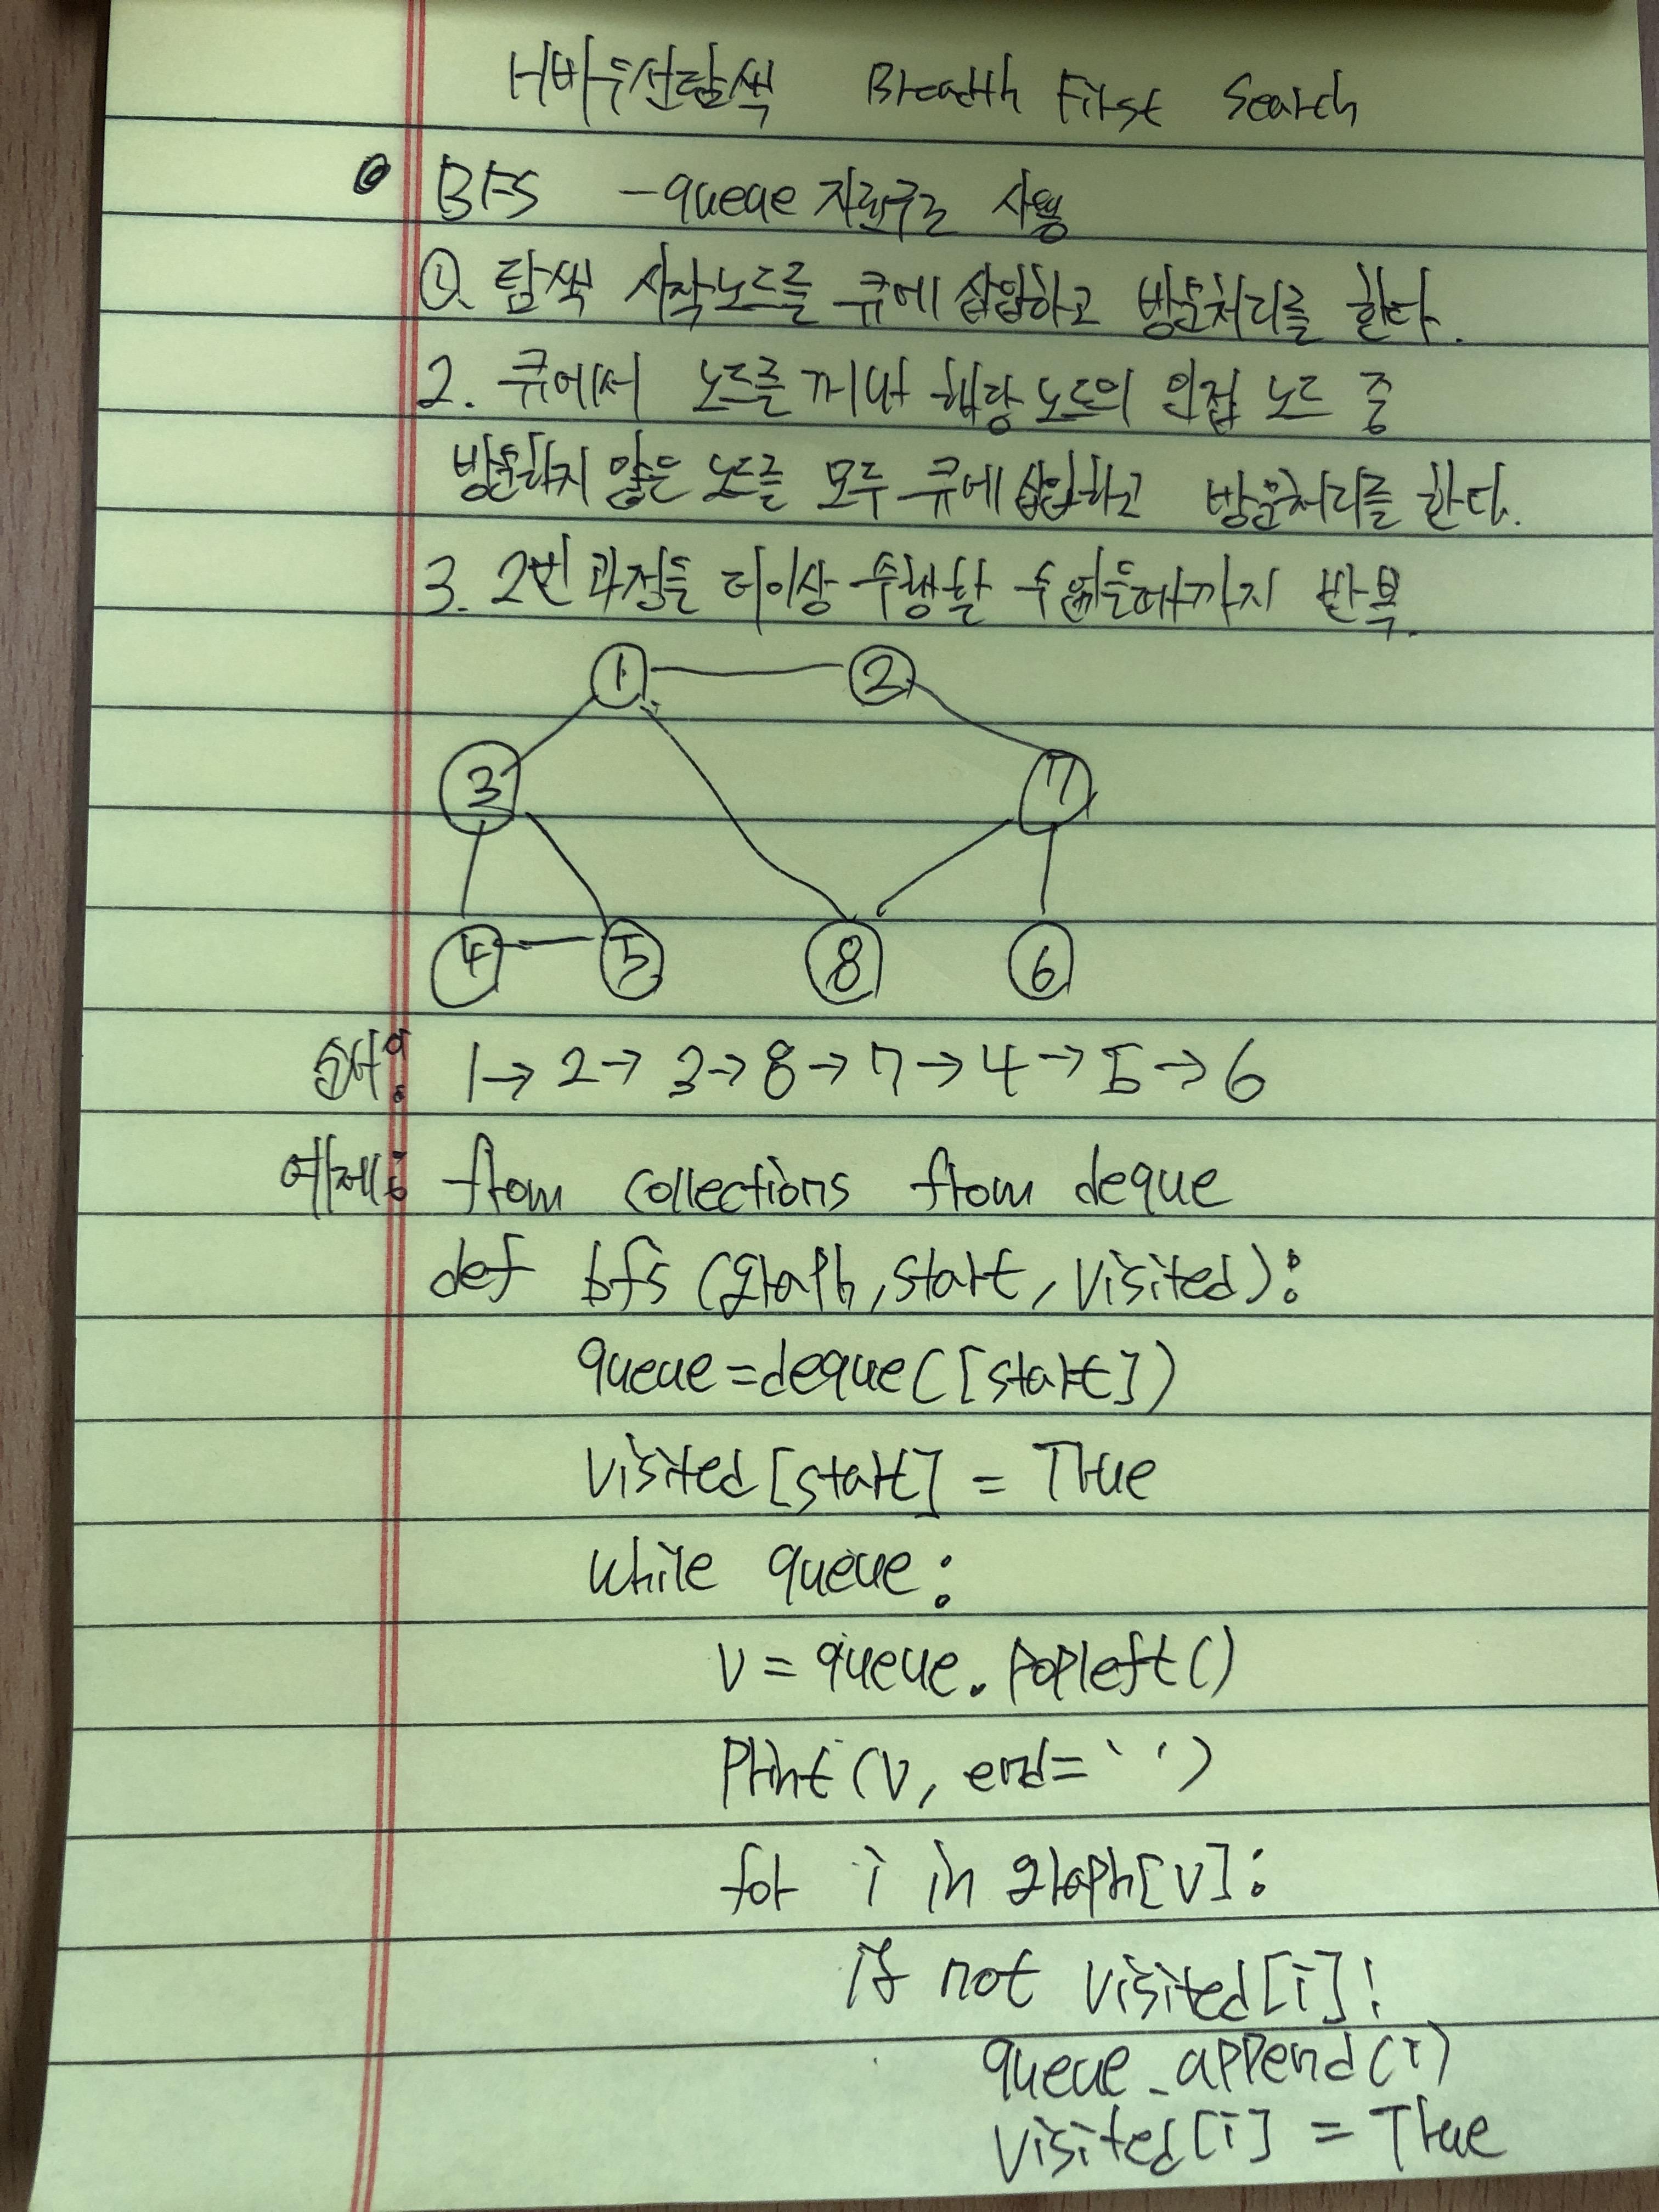 너비우선탐색 Breadth First Search
BFS - queue 자료구조 사용
① 탐색 시작노드를 큐에 삽입하고 방문처리를 한다.
2. 큐에서 노드를 꺼내 해당 노드의 인접 노드 중
방문하지 않은 노드를 모두 큐에 삽입하고 방문처리를 한다.
3. 2번 과정을 더이상 수행할 수 없을때까지 반복.
① ②
③ ⑦
④ ⑤ ⑧ ⑥
순서: 1→2→3→8→7→4→5→6
예제: from collections from deque
def bfs (graph, start, visited):
queue=deque([start])
visited[start] = True
while queue:
v = queue.popleft()
Print(v, end=' ')
for i in graph[v]:
if not visited[i]:
queue.append(i)
visited[i] = True